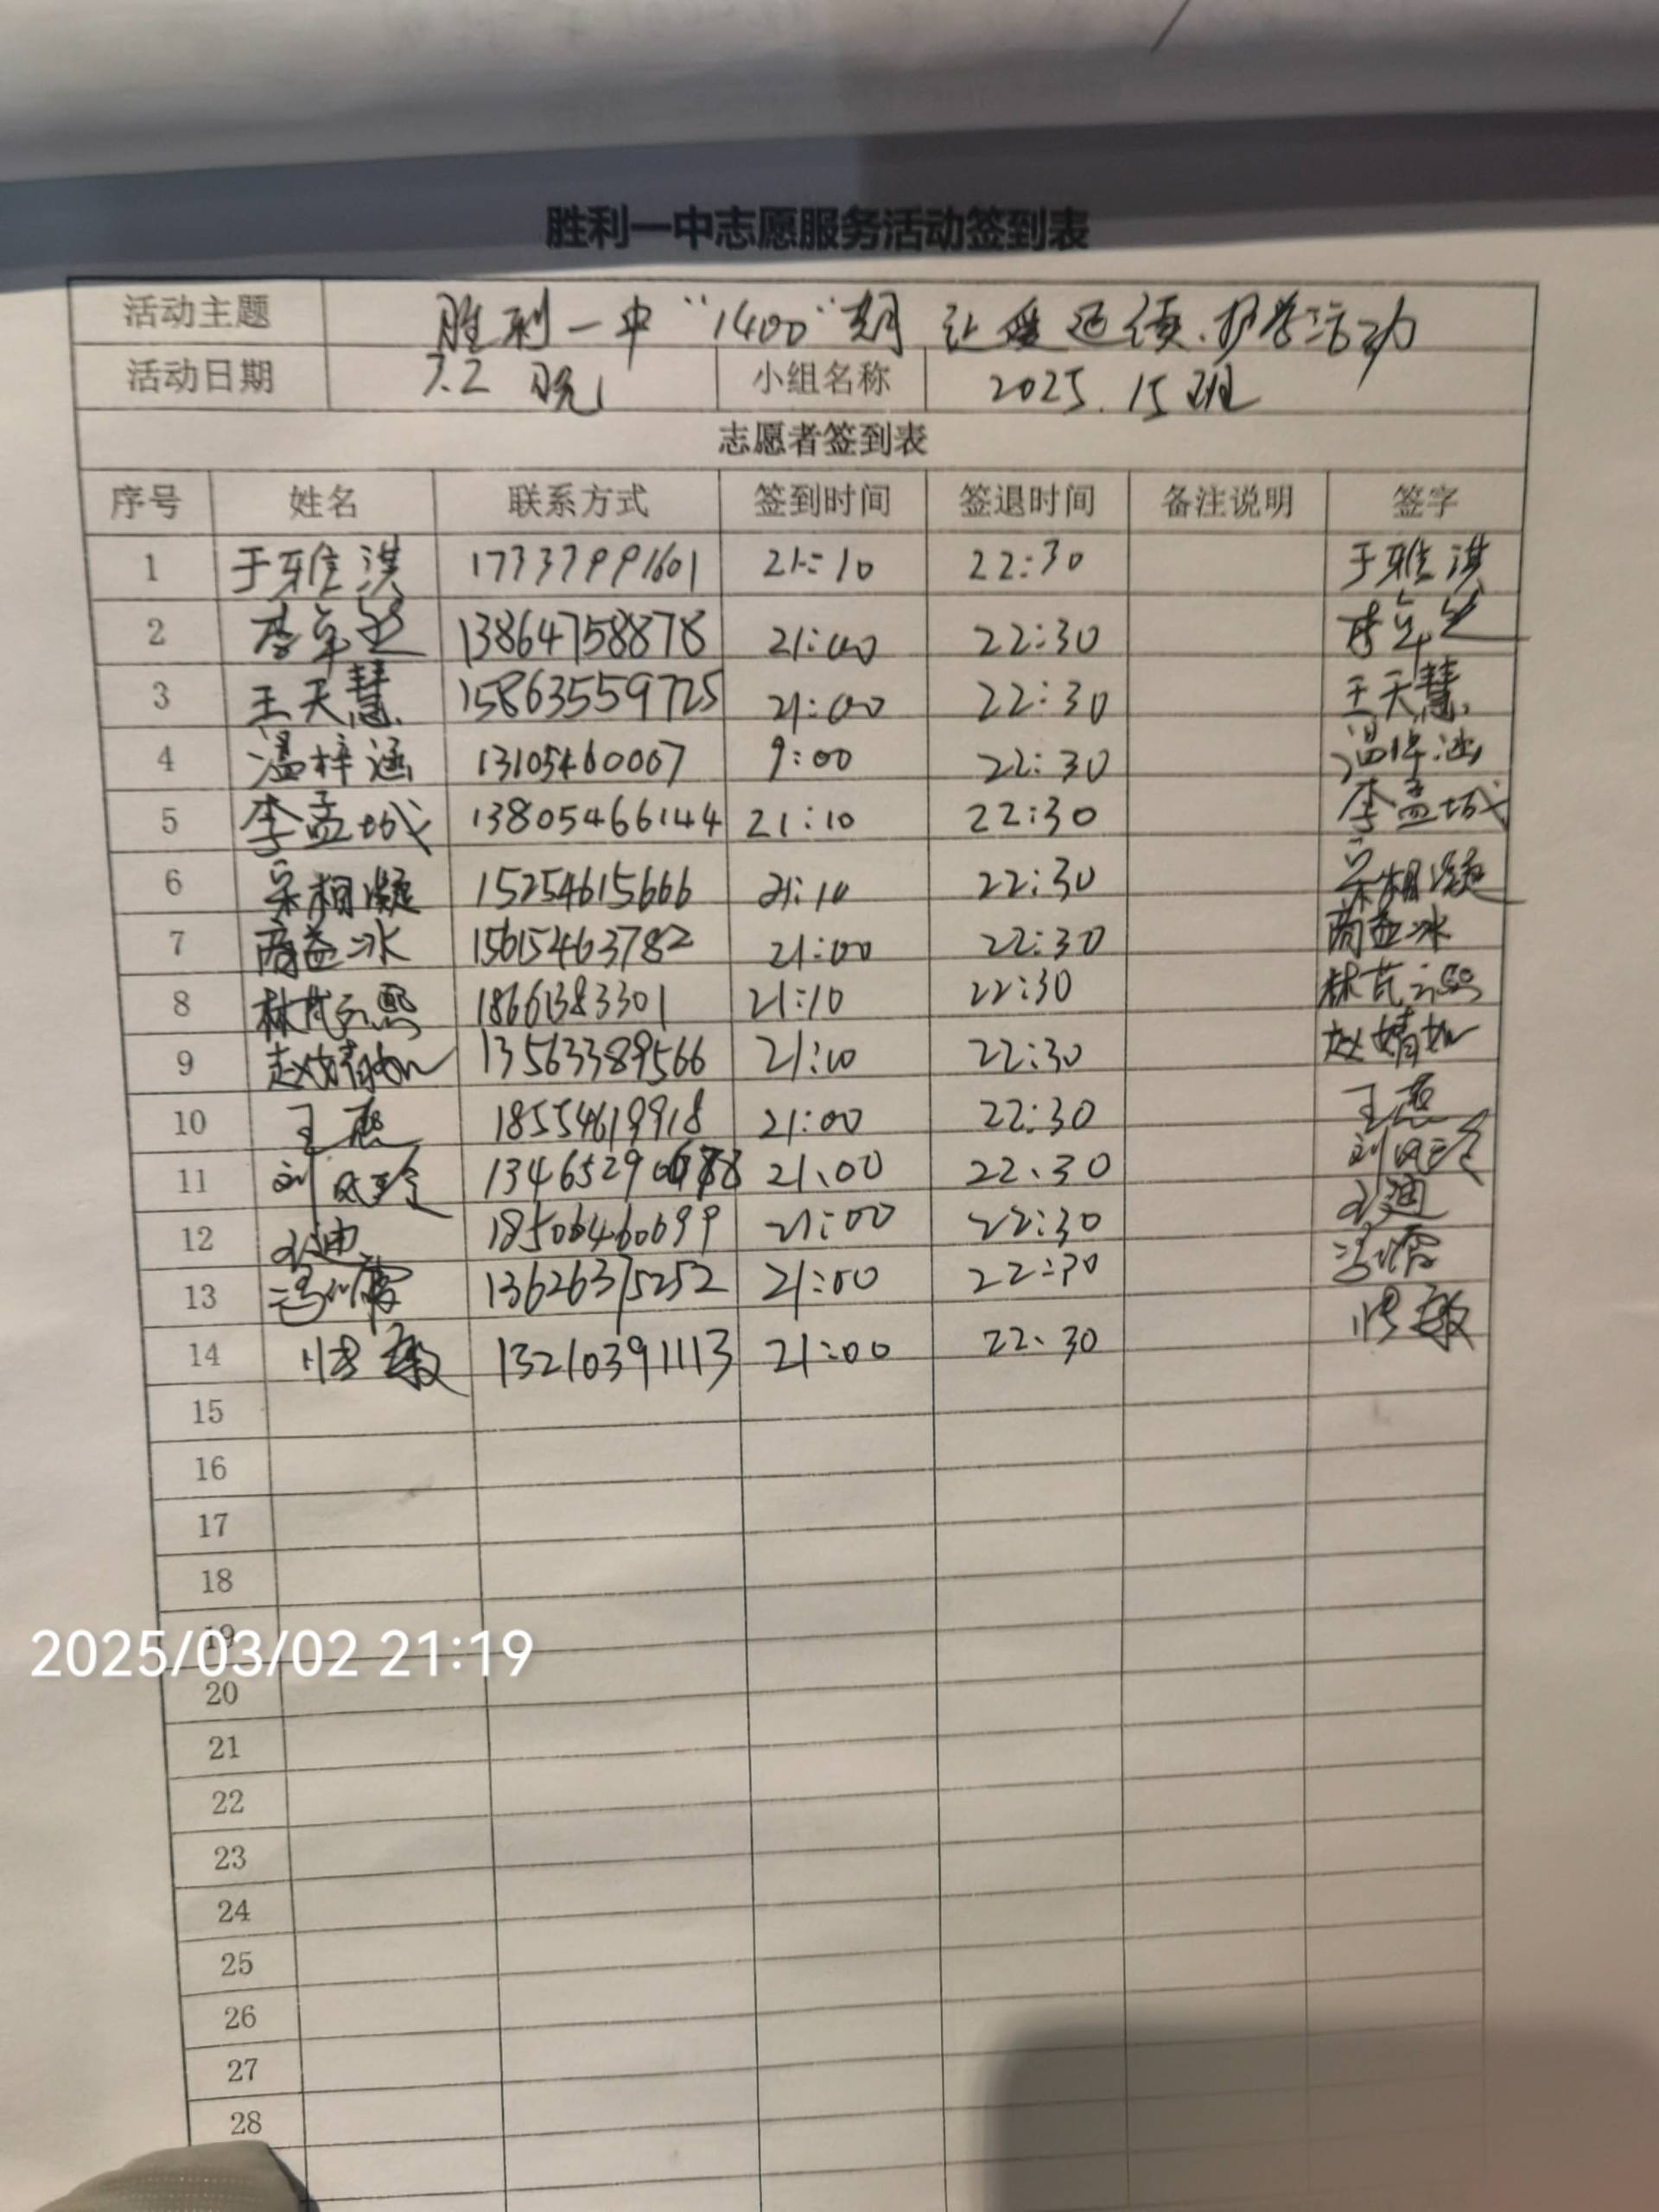 胜利一中志愿服务活动签到表
活动主题 胜利一中“1400”期 让爱延续.护学活动
活动日期 3.2 晚 小组名称 2025.15班
志愿者签到表
序号 姓名 联系方式 签到时间 签退时间 备注说明 签字
1 于雅淇 17337991601 21:10 22:30 于雅淇
2 13864758878 21:00 22:30
3 王天慧 15863559725 21:00 22:30 王天慧
4 温梓涵 13105460007 9:00 22:30 温梓涵
5 李孟城 13805466144 21:10 22:30 李孟城
6 宋相凝 15254615666 21:10 22:30 宋相凝
7 商益冰 15615463782 21:00 22:30 商益冰
8 林芃云熙 18661383301 21:10 22:30 林芃云熙
9 赵婧如 13563389566 21:10 22:30 赵婧如
10 王 18554619918 21:00 22:30 王
11 刘风玲 21:00 22:30 刘风玲
12 迪 18506460699 21:00 22:30 迪
13 冯 13626375252 21:00 22:30 冯
14 敏 13210391113 21:00 22:30 敏
15
16
17
18
19
2025/03/02 21:19
20
21
22
23
24
25
26
27
28